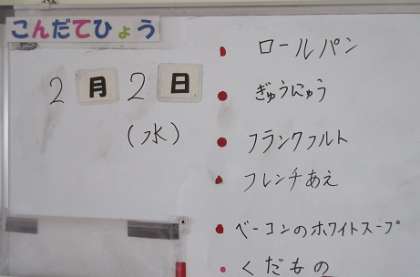 こんだてひょう
2月2日
(水)
ロールパン
ぎゅうにゅう
フランクフルト
フレンチあえ
ベーコンのホワイトスープ
くだもの